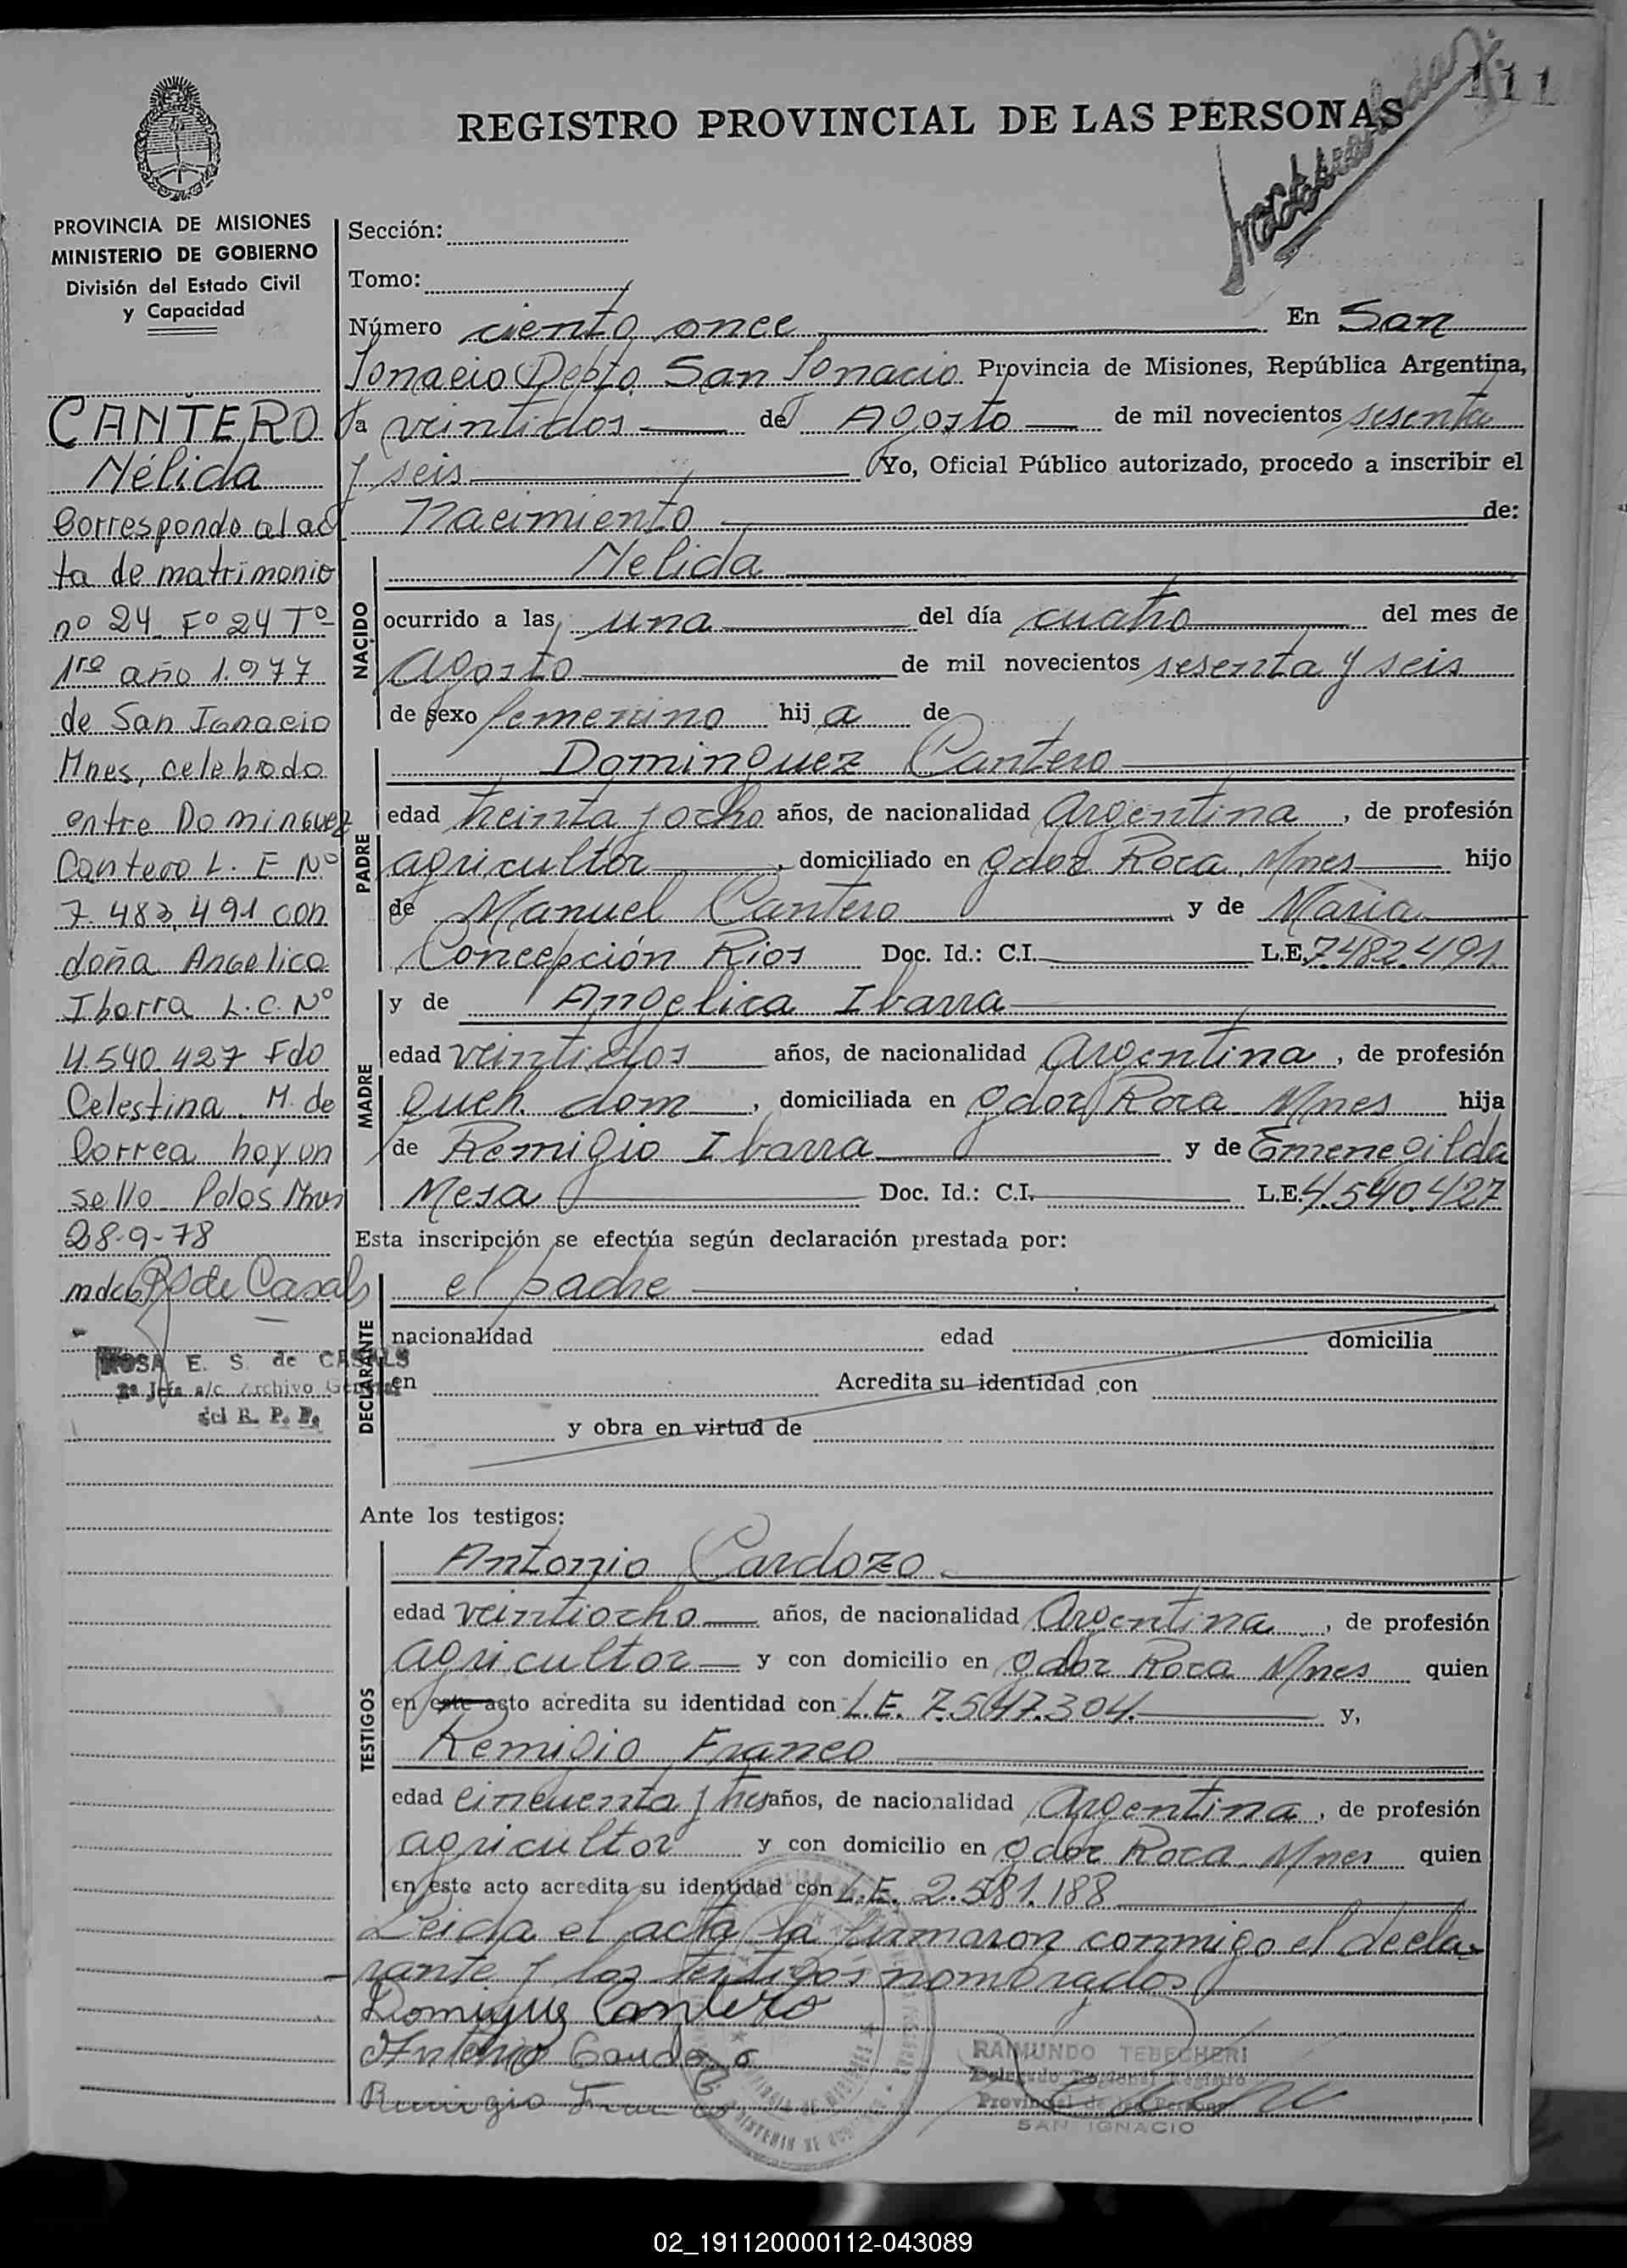 111
REGISTRO PROVINCIAL DE LAS PERSONAS
PROVINCIA DE MISIONES
MINISTERIO DE GOBIERNO
División del Estado Civil
y Capacidad
CANTERO
Nélida
Corresponde al ac
ta de matrimonio
nº 24 Fº 24 Tº
1ro año 1.977
de San Ignacio
Mnes, celebrado
entre Dominguez
Cantero L. E Nº
7.482.491 con
doña Angelica
Ibarra L.C. Nº
4.540.427 Fdo
Celestina M. de
Correa hay un
sello Pdas Mnes
28-9-78
R de Casals
ROSA E. S. de CASALS
2a Jefa a/c Archivo General
del R. P. P.
Sección:
Tomo:
Número ciento once En San
Ignacio Depto. San Ignacio Provincia de Misiones, República Argentina,
a veintidos de Agosto de mil novecientos sesenta
y seis Yo, Oficial Público autorizado, procedo a inscribir el
nacimiento de:
NACIDO
Nelida
ocurrido a las una del día cuatro del mes de
Agosto de mil novecientos sesenta y seis
de sexo femenino hij a de
PADRE
Dominguez Cantero
edad treinta y ocho años, de nacionalidad Argentina, de profesión
agricultor, domiciliado en Gdor Roca, Mnes hijo
de Manuel Cantero y de Maria
Concepción Rios Doc. Id.: C.I. L.E. 7.482.491
MADRE
y de Angelica Ibarra
edad veintidos años, de nacionalidad Argentina, de profesión
Queh. dom, domiciliada en Gdor Roca Mnes hija
de Remigio Ibarra y de Emenegilda
Mesa Doc. Id.: C.I. L.E. 4.540.427
Esta inscripción se efectúa según declaración prestada por:
DECLARANTE
el padre
nacionalidad edad domicilia
en Acredita su identidad con
y obra en virtud de
Ante los testigos:
TESTIGOS
Antonio Cardozo
edad veintiocho años, de nacionalidad Argentina, de profesión
agricultor y con domicilio en Gdor Roca Mnes quien
en este acto acredita su identidad con L.E. 7.547.304. y,
Remigio Franco
edad cincuenta y tres años, de nacionalidad Argentina, de profesión
agricultor y con domicilio en Gdor Roca Mnes quien
en este acto acredita su identidad con L.E. 2.581.188
Leida el acta la firmaron conmigo el decla-
rante y los testigos nombrados
Dominguez Cantero
Antonio Cardozo
Remigio Franco
RAIMUNDO TEBECHERI
Delegado Regional Registro
Provincial de las Personas
SAN IGNACIO
02_191120000112-043089